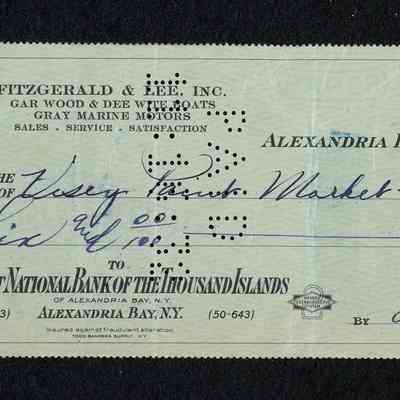 FITZGERALD & LEE, INC.
GAR WOOD & DEE WITE BOATS
GRAY MARINE MOTORS
SALES - SERVICE - SATISFACTION
ALEXANDRIA
THE
OF Market
and 00/100
TO
NATIONAL BANK OF THE THOUSAND ISLANDS
OF ALEXANDRIA BAY, N.Y.
3) ALEXANDRIA BAY, N.Y. (50-643)
BY
Insured against fraudulent alteration
TODD BANKERS SUPPLY, N.Y.